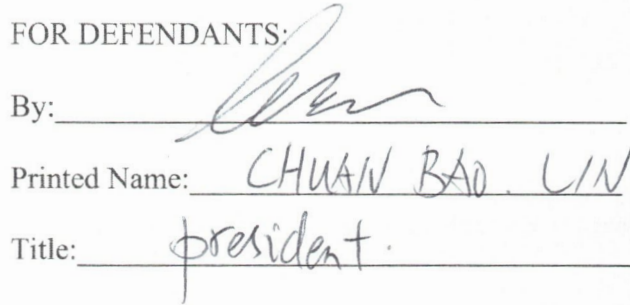 FOR DEFENDANTS:
By:
Printed Name: CHUAN BAO. LIN
Title: president.